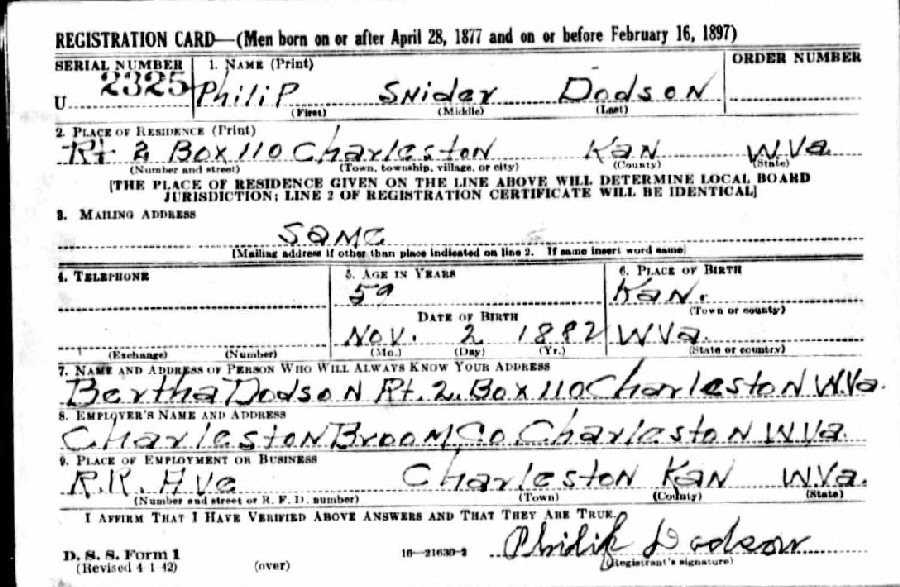 REGISTRATION CARD—(Men born on or after April 28, 1877 and on or before February 16, 1897)
SERIAL NUMBER 1. NAME (Print) ORDER NUMBER
U 2325 Philip Snider Dodson
(First) (Middle) (Last)
2. PLACE OF RESIDENCE (Print)
Rt 2 Box 110 Charleston Kan W.Va.
(Number and street) (Town, township, village, or city) (County) (State)
[THE PLACE OF RESIDENCE GIVEN ON THE LINE ABOVE WILL DETERMINE LOCAL BOARD
JURISDICTION; LINE 2 OF REGISTRATION CERTIFICATE WILL BE IDENTICAL]
3. MAILING ADDRESS
Same
[Mailing address if other than place indicated on line 2. If same insert word same]
4. TELEPHONE 5. AGE IN YEARS 6. PLACE OF BIRTH
59 Kan.
(Town or county)
DATE OF BIRTH
Nov. 2 1882 W Va.
(Exchange) (Number) (Mo.) (Day) (Yr.) (State or country)
7. NAME AND ADDRESS OF PERSON WHO WILL ALWAYS KNOW YOUR ADDRESS
Bertha Dodson Rt. 2. Box 110 Charleston W.Va.
8. EMPLOYER'S NAME AND ADDRESS
Charleston Broom Co. Charleston W.Va.
9. PLACE OF EMPLOYMENT OR BUSINESS
R.R. Ave Charleston Kan W.Va.
(Number and street or R. F. D. number) (Town) (County) (State)
I AFFIRM THAT I HAVE VERIFIED ABOVE ANSWERS AND THAT THEY ARE TRUE.
D. S. S. Form 1 16—21630-2 Philip Dodson
(Revised 4-1-42) (over) (Registrant's signature)